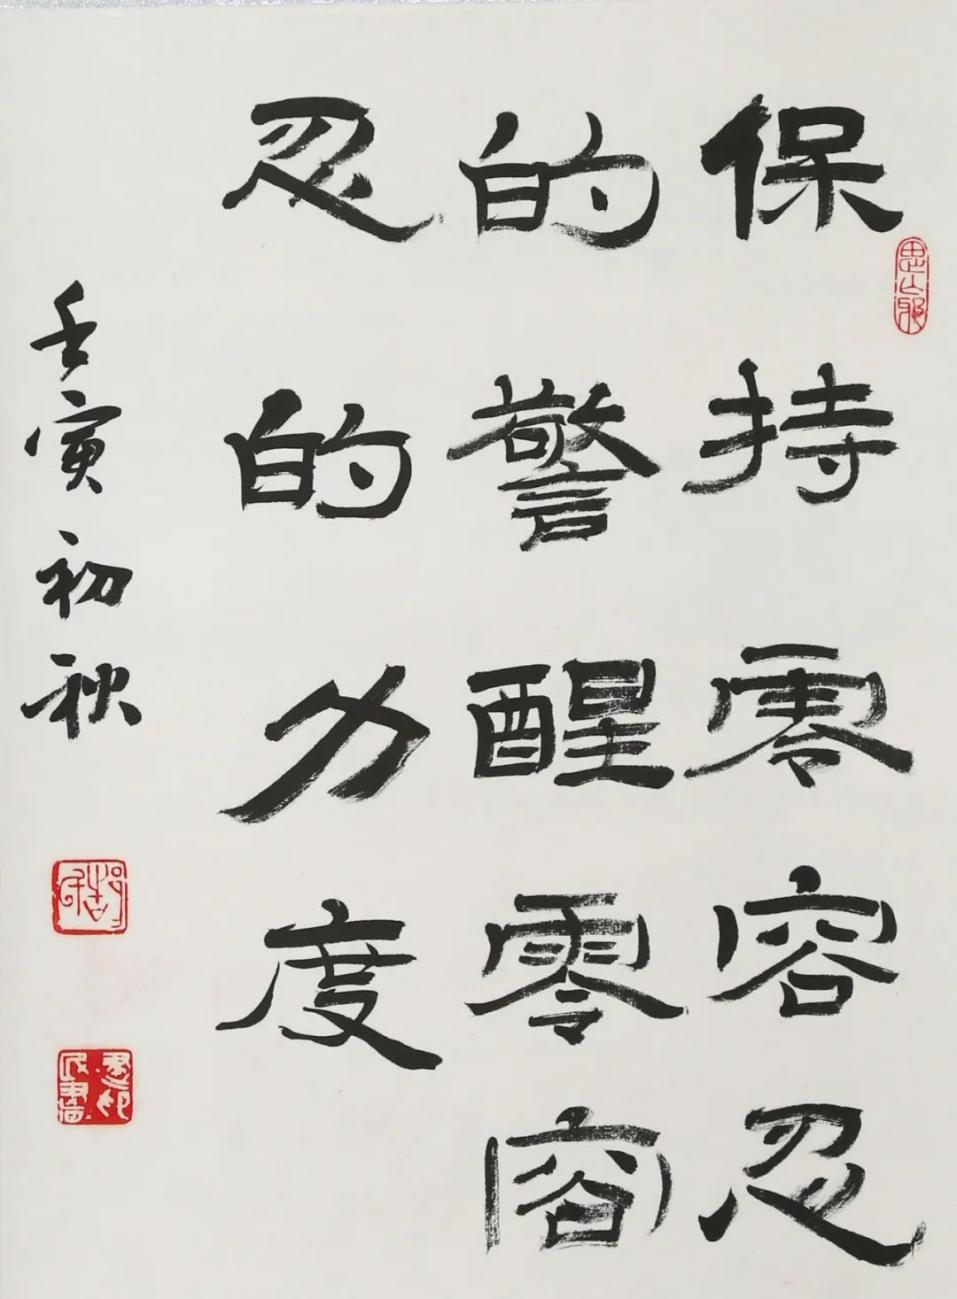 保持零容忍
的警醒零容
忍的力度
壬寅初秋
思无邪